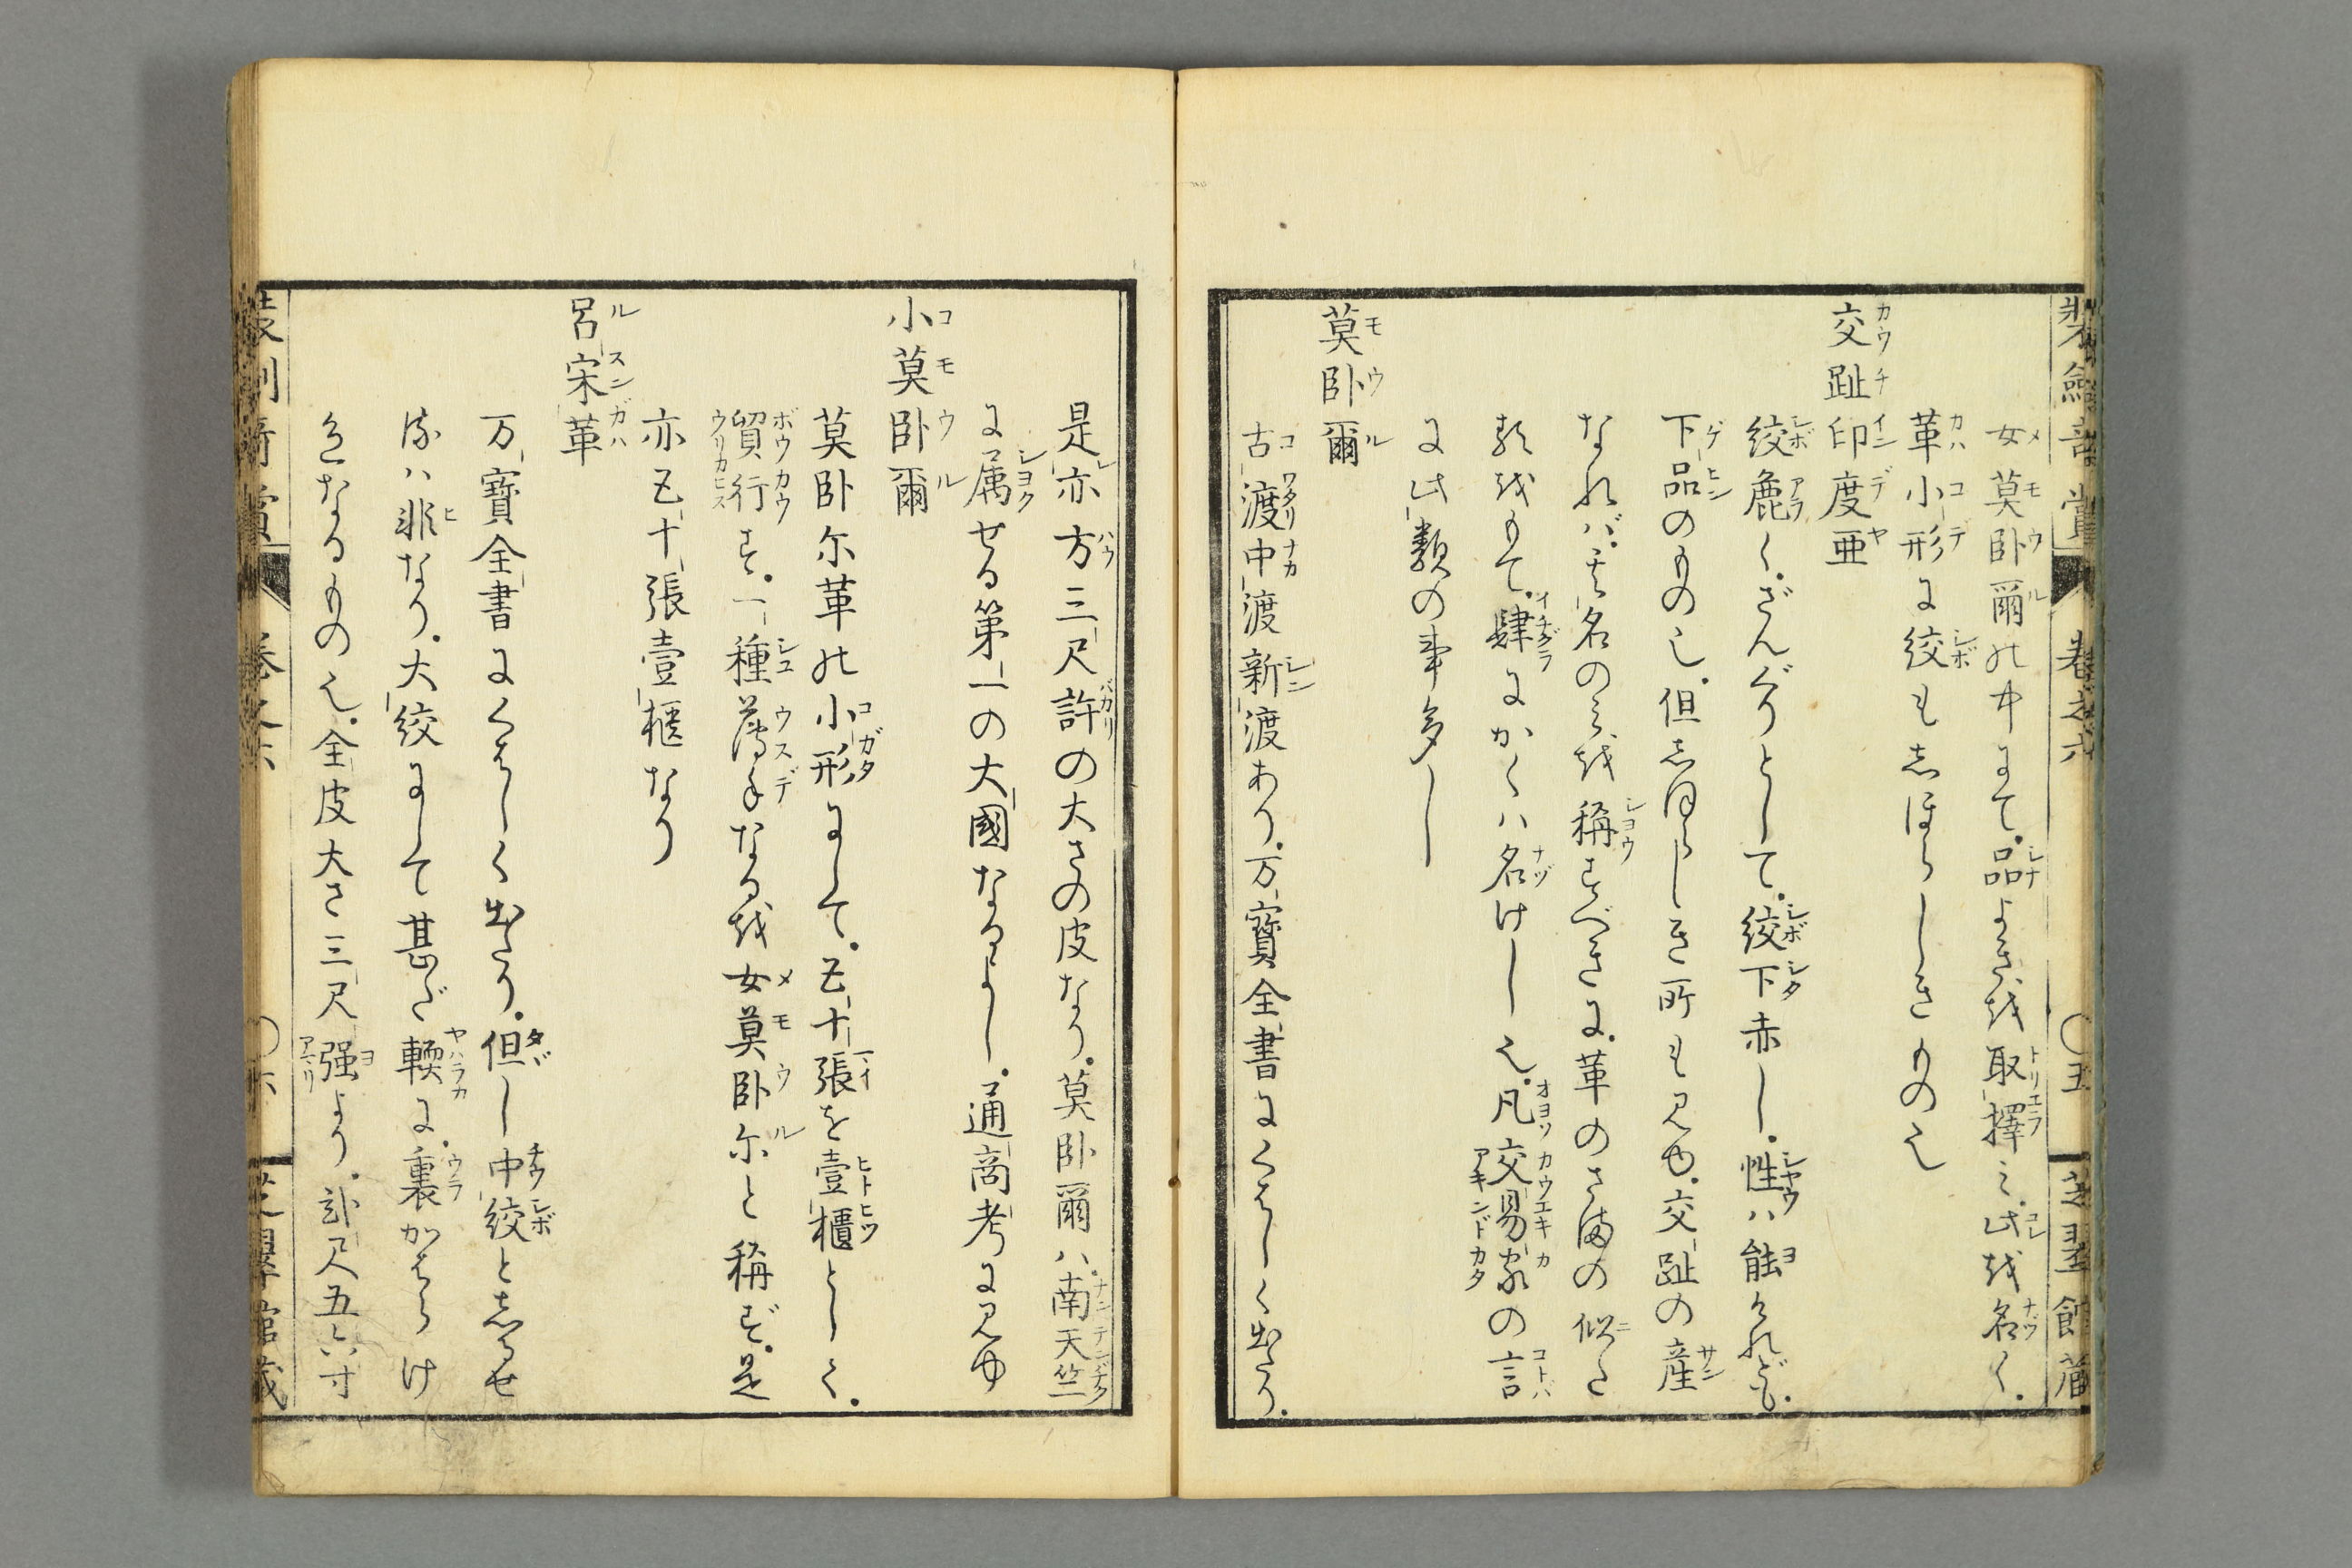 女莫臥爾の中にて。品よきを取擇ミ。此を名く。
革小形に絞も志ほらしきもの也
交趾印度亜
絞麁く。ざんぐりとして。絞下赤し。性ハ能けれども。
下品のもの也。但志ほらしき所も見ゆ。交趾の産
なれバ。其名のミを稱すべきに。革のさまの似た
るをもて。肆にかくハ名けし也。凡交易家の言
に此類の事多し
莫臥爾
古渡中渡新渡あり。万寳全書にくはしく出たり。
是亦方三尺許の大さの皮なり。莫臥爾ハ。南天竺
に属せる第一の大國なるよし。通商考に見ゆ
小莫臥爾
莫臥尓革の小形にして。五十張を壹櫃として。
貿行す。一種薄手なるを女莫臥尓と稱ず。是
亦五十張壹櫃なり
呂宋革
万寳全書にくはしく出たり。但し中絞と志るせ
るハ非なり。大絞にして甚だ輭に。裏かはらけ
色なるもの也。全皮大さ三尺强より。二尺五六寸
裝劍竒賞 巻之六 〇五 芝翠館藏
裝劍竒賞 巻之六 〇六 芝翠館藏